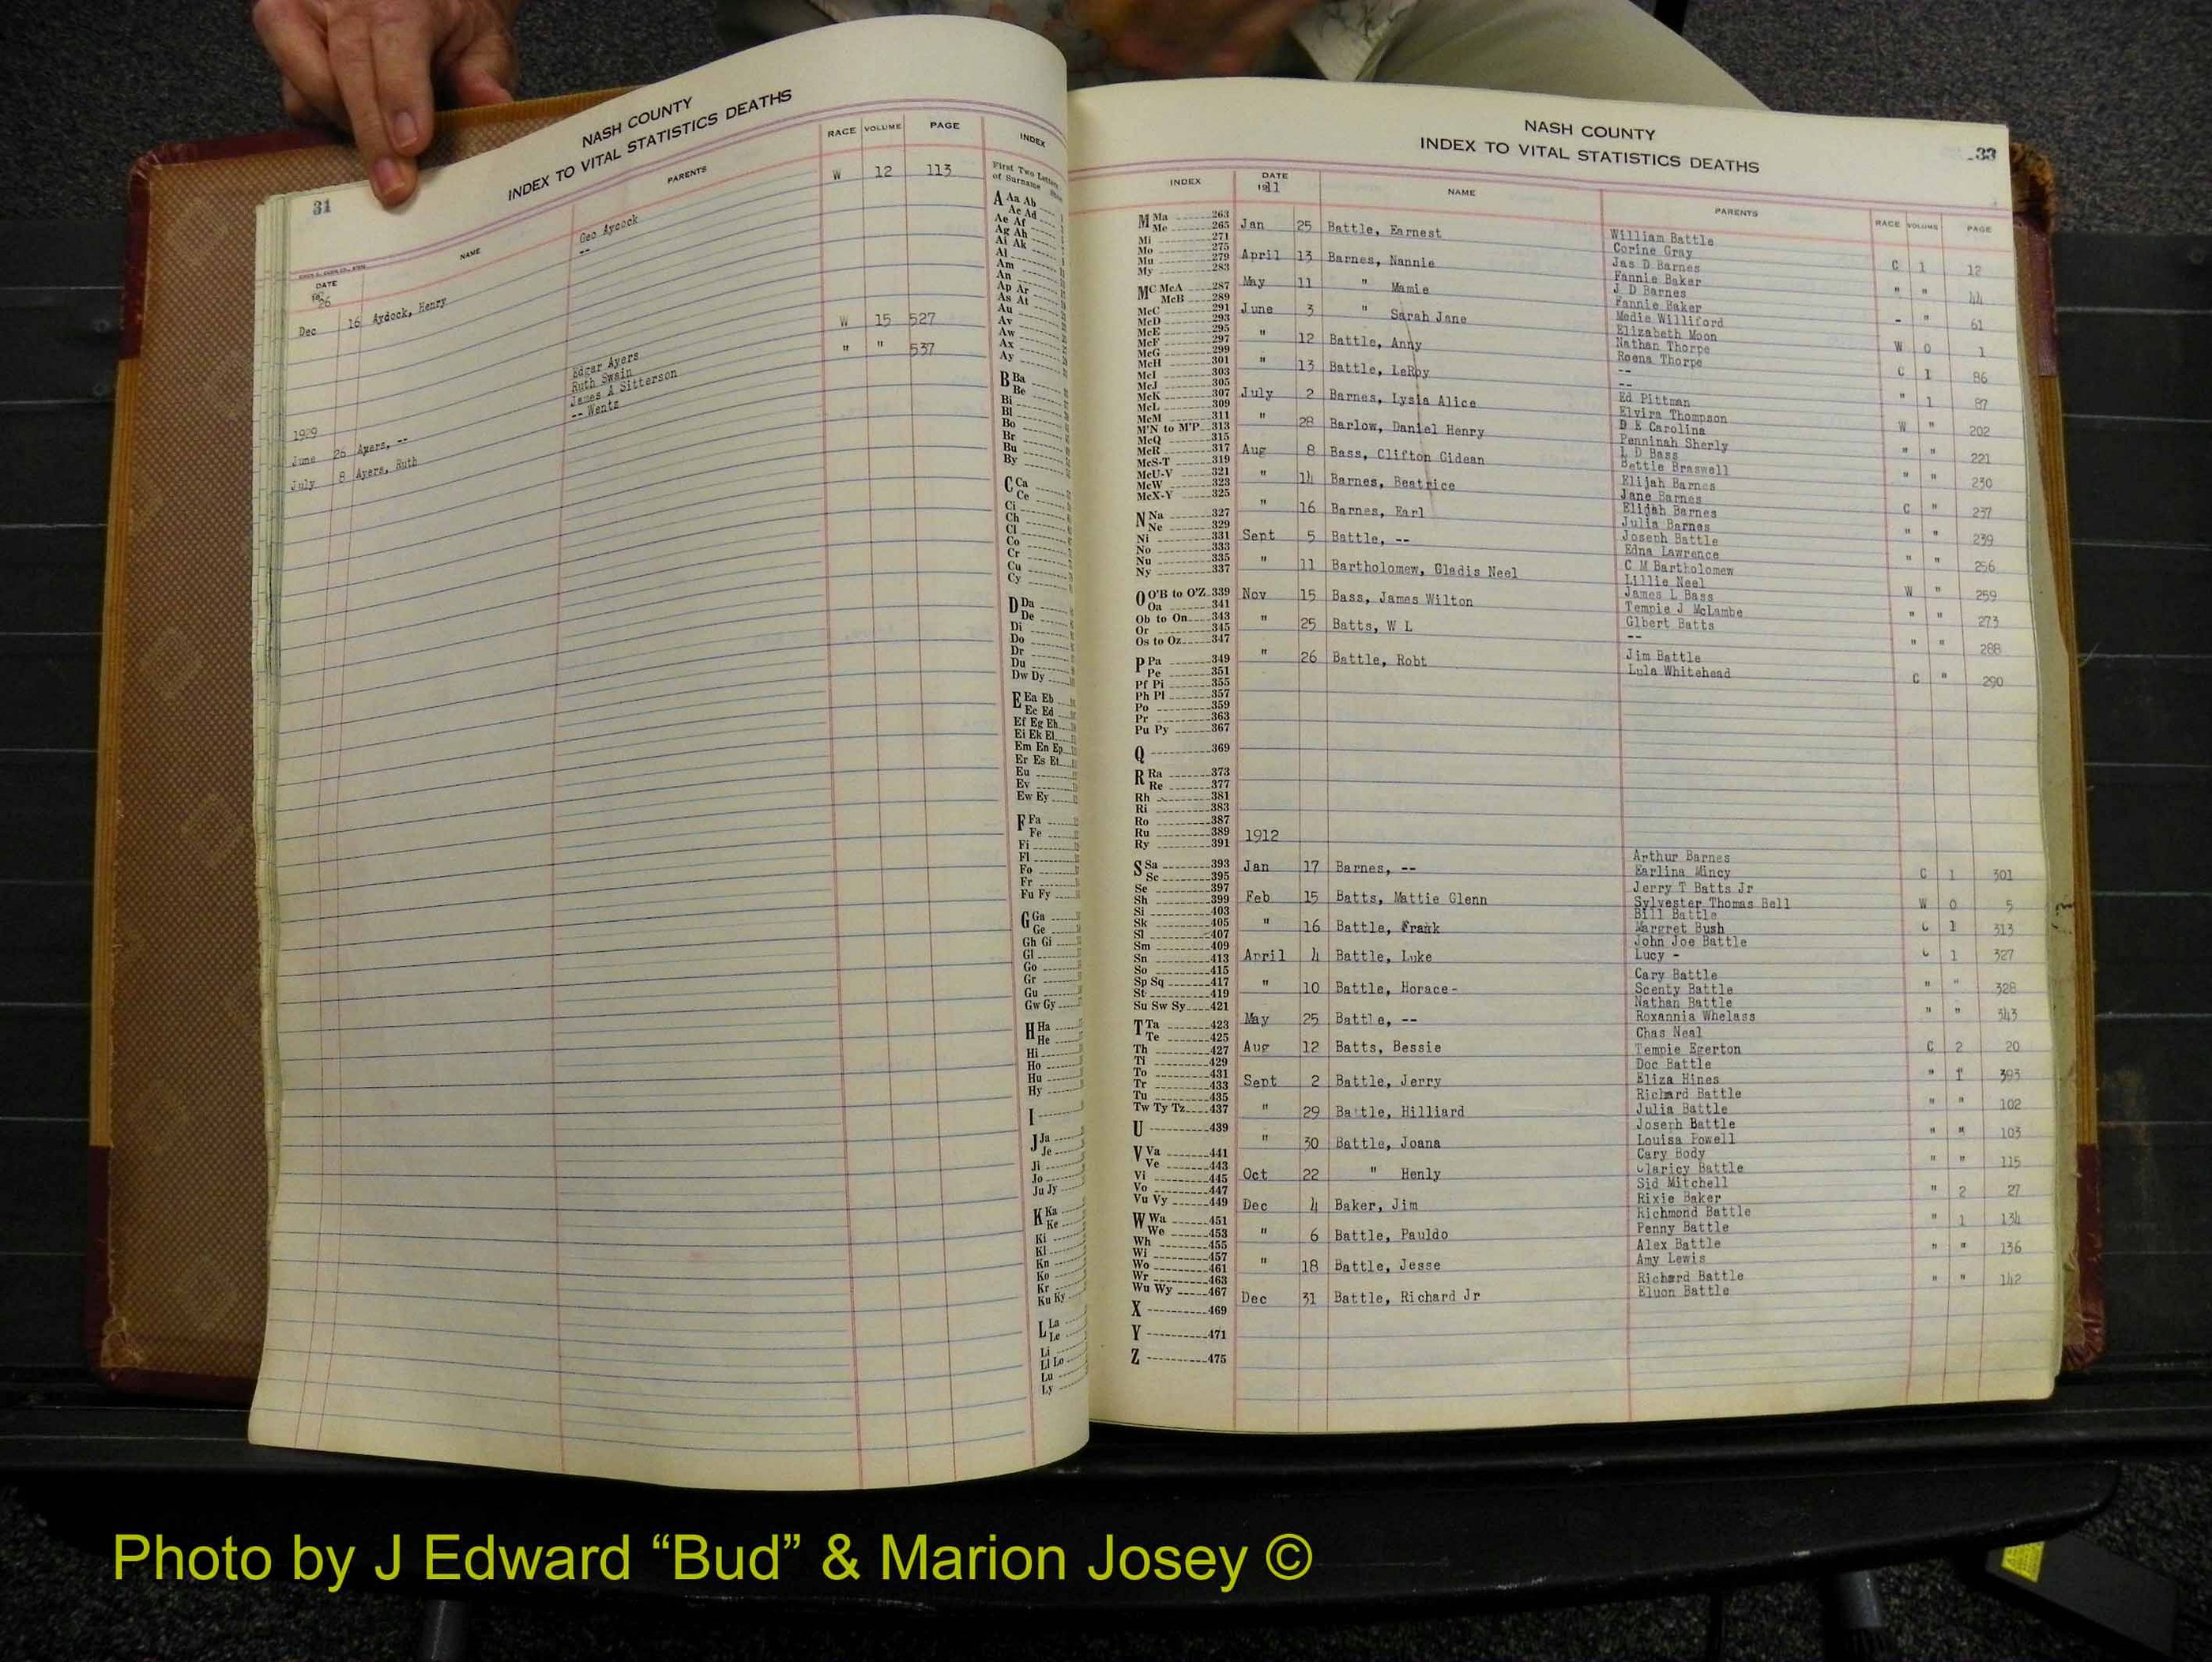 NASH COUNTY
INDEX TO VITAL STATISTICS DEATHS
31
DATE NAME PARENTS RACE VOLUME PAGE
26
Dec 16 Aydock, Henry Geo Aycock W 12 113
--
1929
June 26 Ayers, -- Edgar Ayers W 15 527
Ruth Swain
July 8 Ayers, Ruth James A Sitterson " " 537
-- Wentz
INDEX
First Two Letters
of Surname
A Aa Ab
Ac Ad
Ae Af
Ag Ah
Ai Ak
Al
Am
An
Ap Ar
As At
Au
Av
Aw
Ax
Ay
B Ba
Be
Bi
Bl
Bo
Br
Bu
By
C Ca
Ce
Ci
Ch
Cl
Co
Cr
Cu
Cy
D Da
De
Di
Do
Dr
Du
Dw Dy
E Ea Eb
Ec Ed
Ef Eg Eh
Ei Ek El
Em En Ep
Er Es Et
Eu
Ev
Ew Ey
F Fa
Fe
Fi
Fl
Fo
Fr
Fu Fy
G Ga
Ge
Gh Gi
Gl
Go
Gr
Gu
Gw Gy
H Ha
He
Hi
Ho
Hu
Hy
I
J Ja
Je
Ji
Jo
Ju Jy
K Ka
Ke
Ki
Kl
Kn
Ko
Kr
Ku Ky
L La
Le
Li
Ll Lo
Lu
Ly
NASH COUNTY
INDEX TO VITAL STATISTICS DEATHS
33
INDEX
M Ma 263
Me 265
Mi 271
Mo 275
Mu 279
My 283
Mc McA 287
McB 289
McC 291
McD 293
McE 295
McF 297
McG 299
McH 301
McI 303
McJ 305
McK 307
McL 309
McM 311
M'N to M'P 313
McQ 315
McR 317
McS-T 319
McU-V 321
McW 323
McX-Y 325
N Na 327
Ne 329
Ni 331
No 333
Nu 335
Ny 337
O O'B to O'Z 339
Oa 341
Ob to On 343
Or 345
Os to Oz 347
P Pa 349
Pe 351
Pf Pi 355
Ph Pl 357
Po 359
Pr 363
Pu Py 367
Q 369
R Ra 373
Re 377
Rh 381
Ri 383
Ro 387
Ru 389
Ry 391
S Sa 393
Sc 395
Se 397
Sh 399
Si 403
Sk 405
Sl 407
Sm 409
Sn 413
So 415
Sp Sq 417
St 419
Su Sw Sy 421
T Ta 423
Te 425
Th 427
Ti 429
To 431
Tr 433
Tu 435
Tw Ty Tz 437
U 439
V Va 441
Ve 443
Vi 445
Vo 447
Vu Vy 449
W Wa 451
We 453
Wh 455
Wi 457
Wo 461
Wr 463
Wu Wy 467
X 469
Y 471
Z 475
DATE NAME PARENTS RACE VOLUME PAGE
1911
Jan 25 Battle, Earnest William Battle
Corine Gray C 1 12
April 13 Barnes, Nannie Jas D Barnes
Fannie Baker " " 44
May 11 " Mamie J D Barnes
Fannie Baker - " 61
June 3 " Sarah Jane Medie Williford
Elizabeth Moon W 0 1
" 12 Battle, Anny Nathan Thorpe
Roena Thorpe C 1 86
" 13 Battle, LeRoy --
-- " 1 87
July 2 Barnes, Lysia Alice Ed Pittman
Elvira Thompson W " 202
" 28 Barlow, Daniel Henry D E Carolina
Penninah Sherly " " 221
Aug 8 Bass, Clifton Gidean L D Bass
Bettie Braswell " " 230
" 14 Barnes, Beatrice Elijah Barnes
Jane Barnes C " 237
" 16 Barnes, Earl Elijah Barnes
Julia Barnes " " 239
Sept 5 Battle, -- Joseph Battle
Edna Lawrence " " 256
" 11 Bartholomew, Gladis Neel C M Bartholomew
Lillie Neel W " 259
Nov 15 Bass, James Wilton James L Bass
Tempie J McLambe " " 273
" 25 Batts, W L Glbert Batts
-- " " 288
" 26 Battle, Robt Jim Battle
Lula Whitehead C " 290
1912
Arthur Barnes
Jan 17 Barnes, -- Earlina Mincy C 1 301
Jerry T Batts Jr
Feb 15 Batts, Mattie Glenn Sylvester Thomas Bell W 0 5
Bill Battle
" 16 Battle, Frank Margret Bush C 1 313
John Joe Battle
April 4 Battle, Luke Lucy - C 1 327
Cary Battle
" 10 Battle, Horace- Scenty Battle " " 328
Nathan Battle
May 25 Battle, -- Roxannia Whelass " " 343
Chas Neal
Aug 12 Batts, Bessie Tempie Egerton C 2 20
Doc Battle
Sept 2 Battle, Jerry Eliza Hines " 1 393
Richard Battle
" 29 Battle, Hilliard Julia Battle " " 102
Joseph Battle
" 30 Battle, Joana Louisa Powell " " 103
Cary Body
Oct 22 " Henly Claricy Battle " " 115
Sid Mitchell
Dec 4 Baker, Jim Rixie Baker " 2 27
Richmond Battle
" 6 Battle, Pauldo Penny Battle " 1 134
Alex Battle
" 18 Battle, Jesse Amy Lewis " " 136
Richard Battle
Dec 31 Battle, Richard Jr Eluon Battle " " 142
Photo by J Edward “Bud” & Marion Josey ©